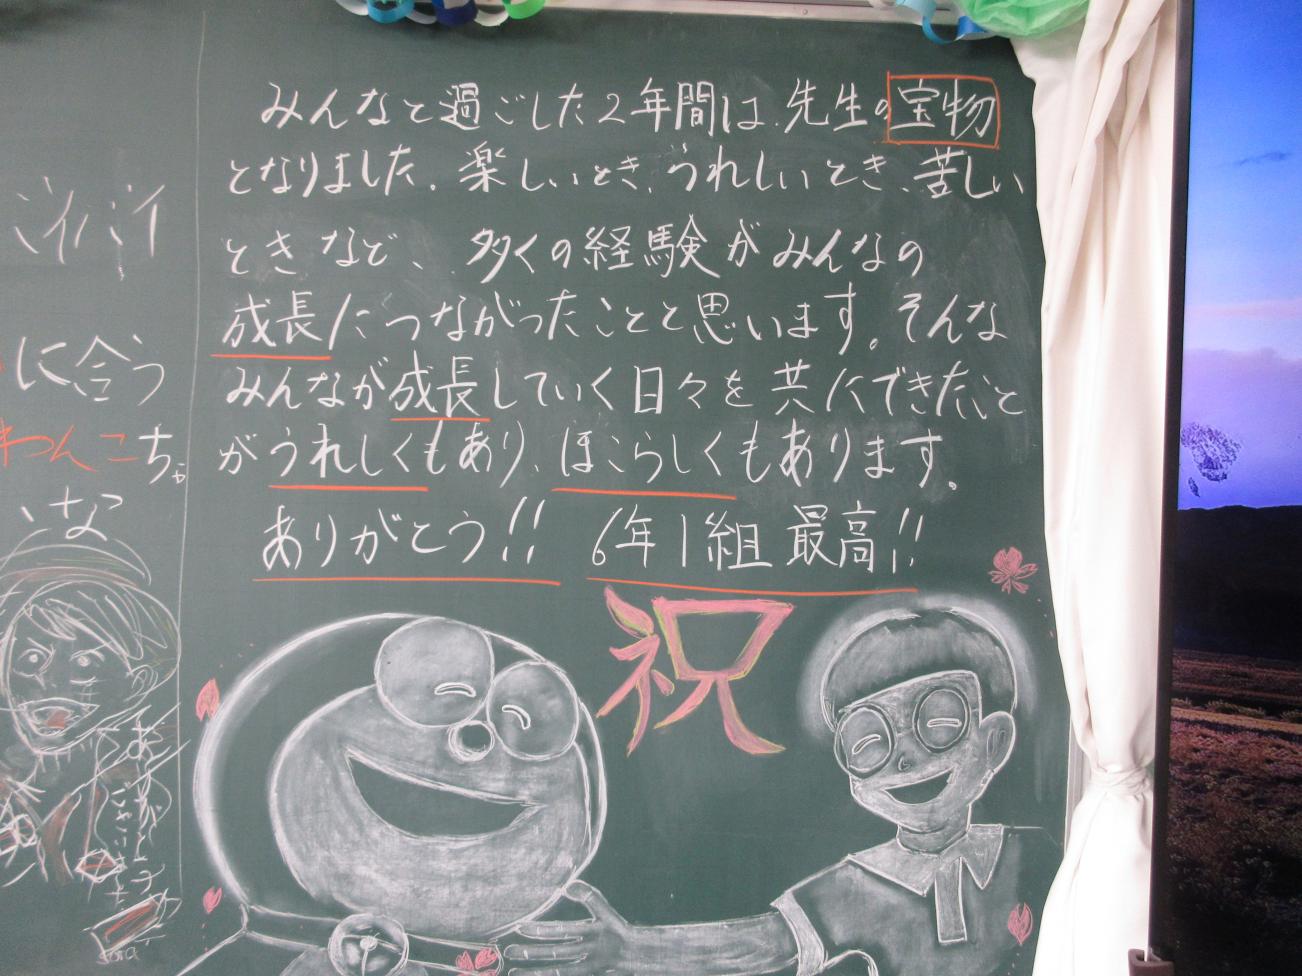 みんなと過ごした2年間は、先生の宝物
となりました。楽しいとき、うれしいとき、苦しい
ときなど、多くの経験がみんなの
成長につながったことと思います。そんな
みんなが成長していく日々を共にできたこと
がうれしくもあり、ほこらしくもあります。
ありがとう!! 6年1組最高!!
祝
に合う
わんこちゃ
いな
ありがとう
ございました
sora